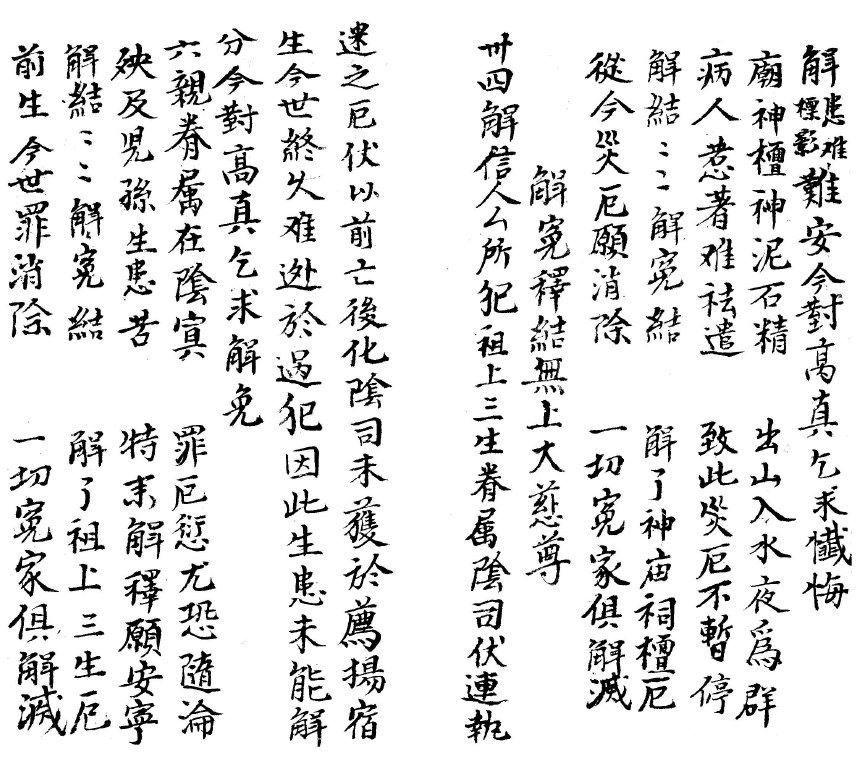 解患难標影難安今對高真乞求懺悔
廟神檀神泥石精 出山入水夜爲群
病人惹著难祛遣 致此災厄不暫停
解結〻〻解寃結 解了神庙祠檀厄
從今災厄願消除 一切寃家俱解滅
解寃釋結無上大慈尊
卅四解信人厶所犯祖上三生眷属陰司伏連執
逮之厄伏以前亡後化陰司未獲於薦揚宿
生今世終久难迯於過犯因此生患未能解
分今對高真乞求解免
六親眷属在陰冥 罪厄愆尤恐隨淪
殃及児孫生患苦 特来解釋願安寧
解結〻〻解寃結 解了祖上三生厄
前生今世罪消除 一切寃家俱解滅